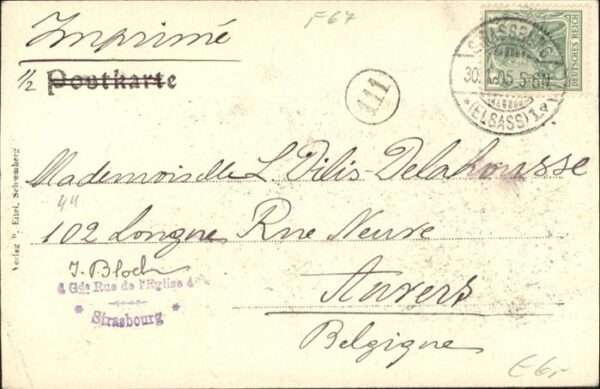 F 67
Imprimé
1/2 Postkarte
DEUTSCHES REICH
STRASSBURG
30. 1. 05 5-6N
* (ELSASS) 1. *
111
Mademoiselle L. Pilis-Delahousse
44
102 Longue Rue Neuve
J. Bloch
4 Gde Rue de l'Eglise 4
* Strasbourg *
Anvers
Belgique
Verlag v. Eitel, Schramberg